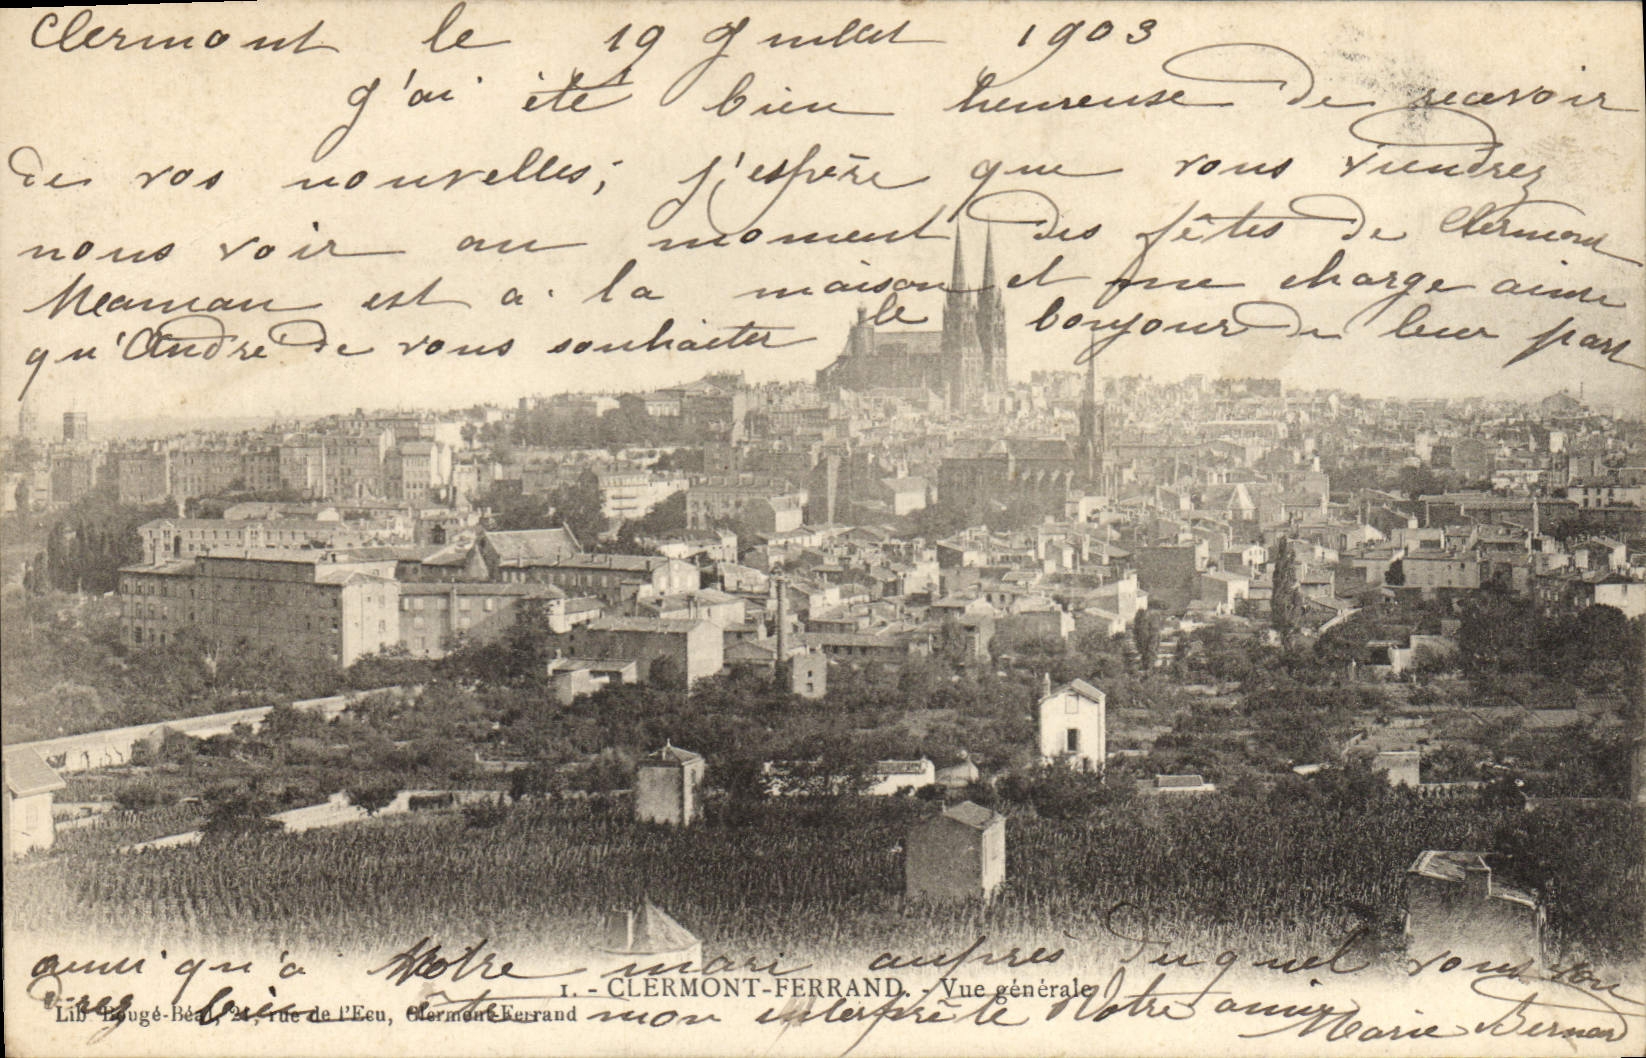 Clermont le 19 Juillet 1903
J'ai été bien heureuse de recevoir
de vos nouvelles; j'espère que vous viendrez
nous voir au moment des fêtes de Clermont
Maman est à la maison et me charge ainsi
qu'André de vous souhaiter le bonjour de leur part
ainsi qu'à Votre mari auprès duquel vous vou
drez bien être mon interprête Votre amie
Marie Bernard
1. - CLERMONT-FERRAND. - Vue générale
Lib Bougé-Béal, 21, rue de l'Ecu, Clermont-Ferrand